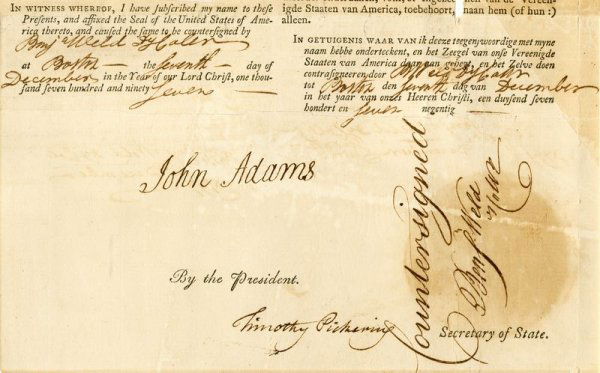 IN WITNESS WHEREOF, I have subscribed my name to these
Presents, and affixed the Seal of the United States of Ame-
rica thereto, and caused the same to be countersigned by
Benj Weld D Coler
at Boston the Seventh day of
December in the Year of our Lord Christ, one thou-
sand seven hundred and ninety Seven
nen van de Vereen-
igde Staaten van America, toebehoort, naam hem (of hun :)
alleen.
IN GETUIGENIS WAAR VAN ik deeze tegenwoordige met myne
naam hebbe onderteekent, en het Zeegel van onse Vereenigde
Staaten van America daar aan gehegt, en het Zelve doen
contrasigneeren door
tot Boston den Seventh dag van December
in het yaar van onzes Heeren Christi, een duysend seven
hondert en Seven negentig
John Adams
By the President.
Timothy Pickering
Secretary of State.
Countersigned
Benj Weld